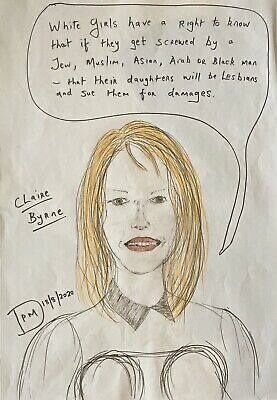 White Girls have a Right to know
that if they get screwed by a
Jew, Muslim, Asian, Arab or Black man
– that their daughters will be Lesbians
and sue them for damages.
Claire
Byrne
DPM 18/8/2020